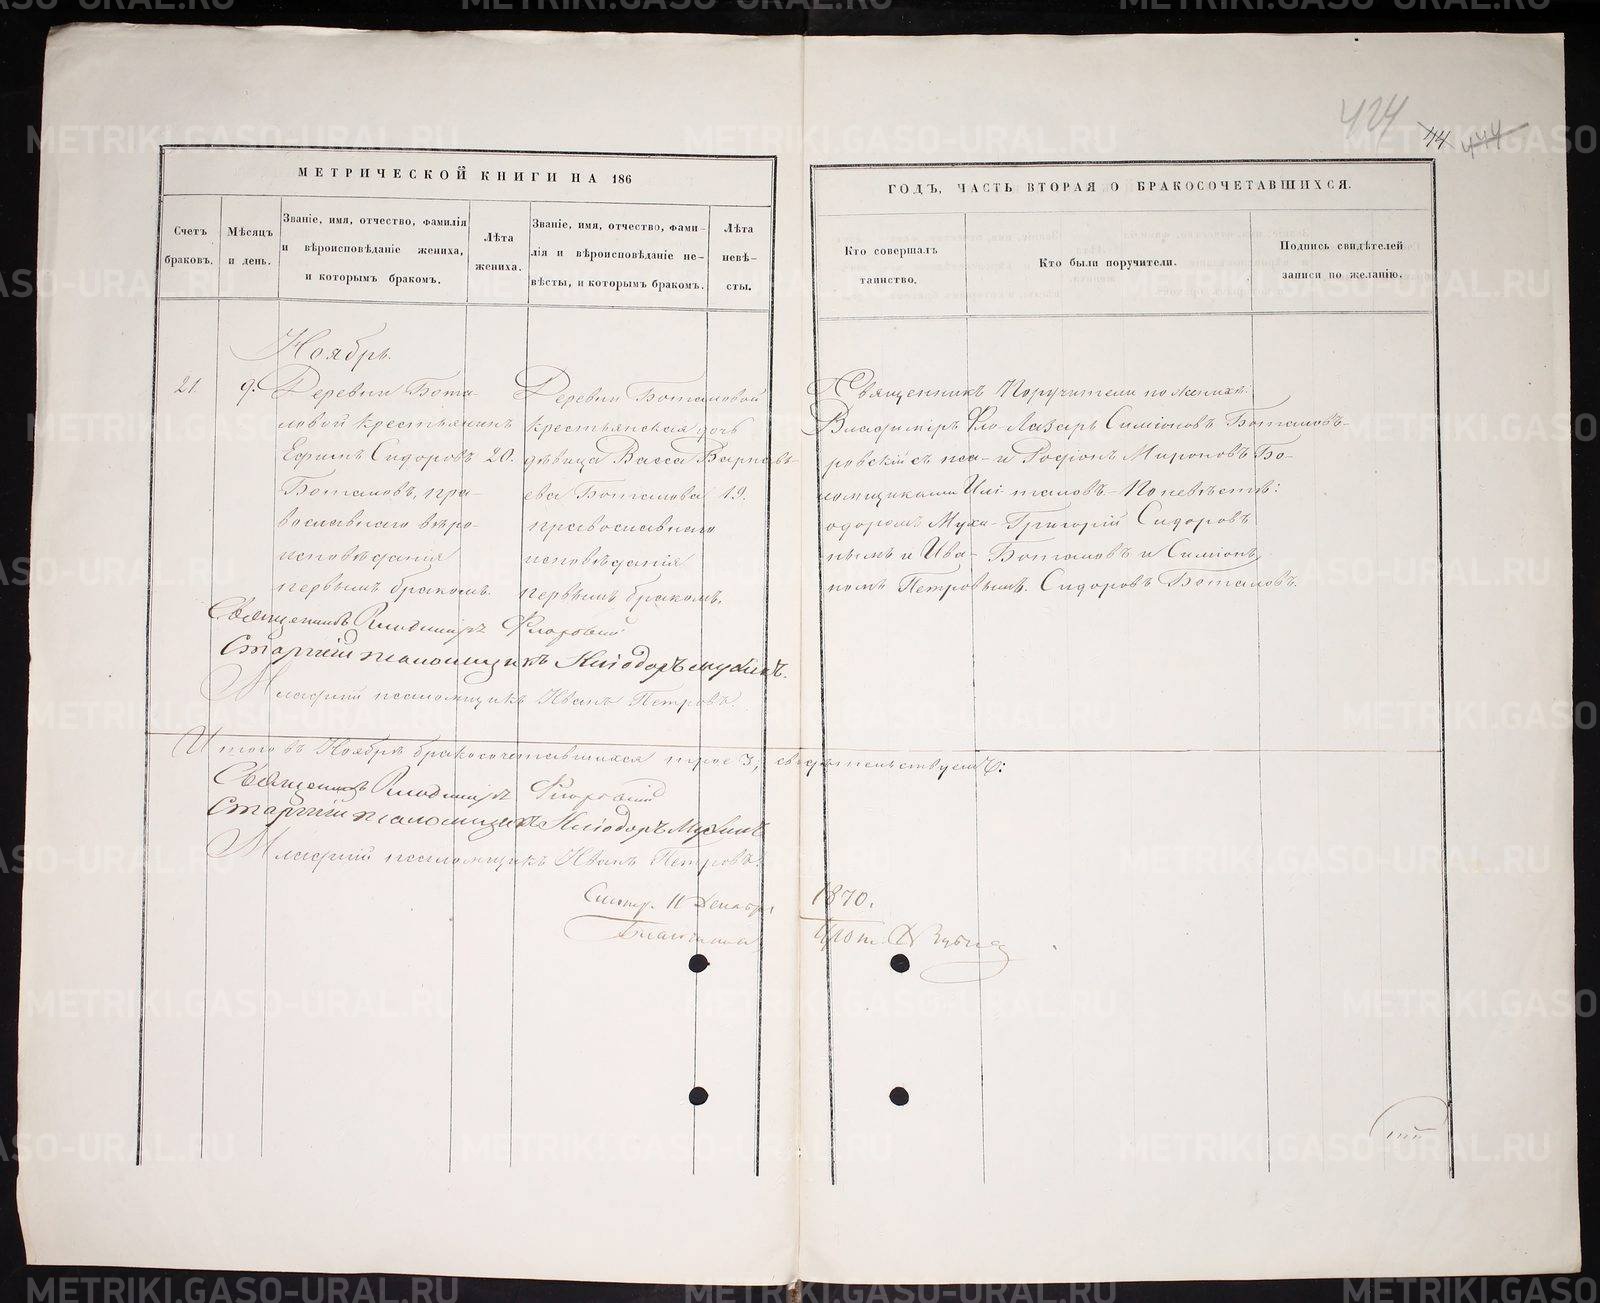 424
44
МЕТРИЧЕСКОЙ КНИГИ НА 186
ГОДЪ, ЧАСТЬ ВТОРАЯ О БРАКОСОЧЕТАВШИХСЯ.
Счетъ браковъ.
Мѣсяцъ и день.
Званіе, имя, отчество, фамилія
и вѣроисповѣданіе жениха,
и которымъ бракомъ.
Лѣта жениха.
Званіе, имя, отчество, фами-
лія и вѣроисповѣданіе не-
вѣсты, и которымъ бракомъ.
Лѣта невѣ-
сты.
Кто совершалъ
таинство.
Кто были поручители.
Подпись свидѣтелей
записи по желанію.
Ноябрь.
21. 9.
Деревни Бота-
ловой крестьянинъ
Ефимъ Сидоровъ 20.
Боталовъ, пра-
вославнаго вѣро-
исповѣданія
первымъ бракомъ.
Деревни Боталовой
крестьянская дочь
дѣвица Васса Варнав-
ева Боталова 19.
православнаго
исповѣданія
первымъ бракомъ.
Священникъ
Владимiръ Фло-
ровскій съ пса-
ломщиками Илі-
одоромъ Мухи-
нымъ и Ива-
номъ Петровымъ.
Поручители по женихѣ:
Лазарь Симіоновъ Боталовъ
и Родіонъ Мироновъ Бо-
таловъ. По невѣстѣ:
Григорій Сидоровъ
Боталовъ и Симіонъ
Сидоровъ Боталовъ.
Священникъ Владимиръ Флоровскій
Старшій псаломщикъ Иліодоръ Мухинъ.
Младшій псаломщикъ Иванъ Петровъ.
Итого въ Ноябрѣ бракосочетавшихся трое 3, свидѣтельствуемъ:
Священникъ Владимиръ Флоровскій
Старшій псаломщикъ Иліодоръ Мухинъ
Младшій псаломщикъ Иванъ Петровъ.
Смотр. 11 Декабря 1870.
Прот.
METRIKI.GASO-URAL.RU